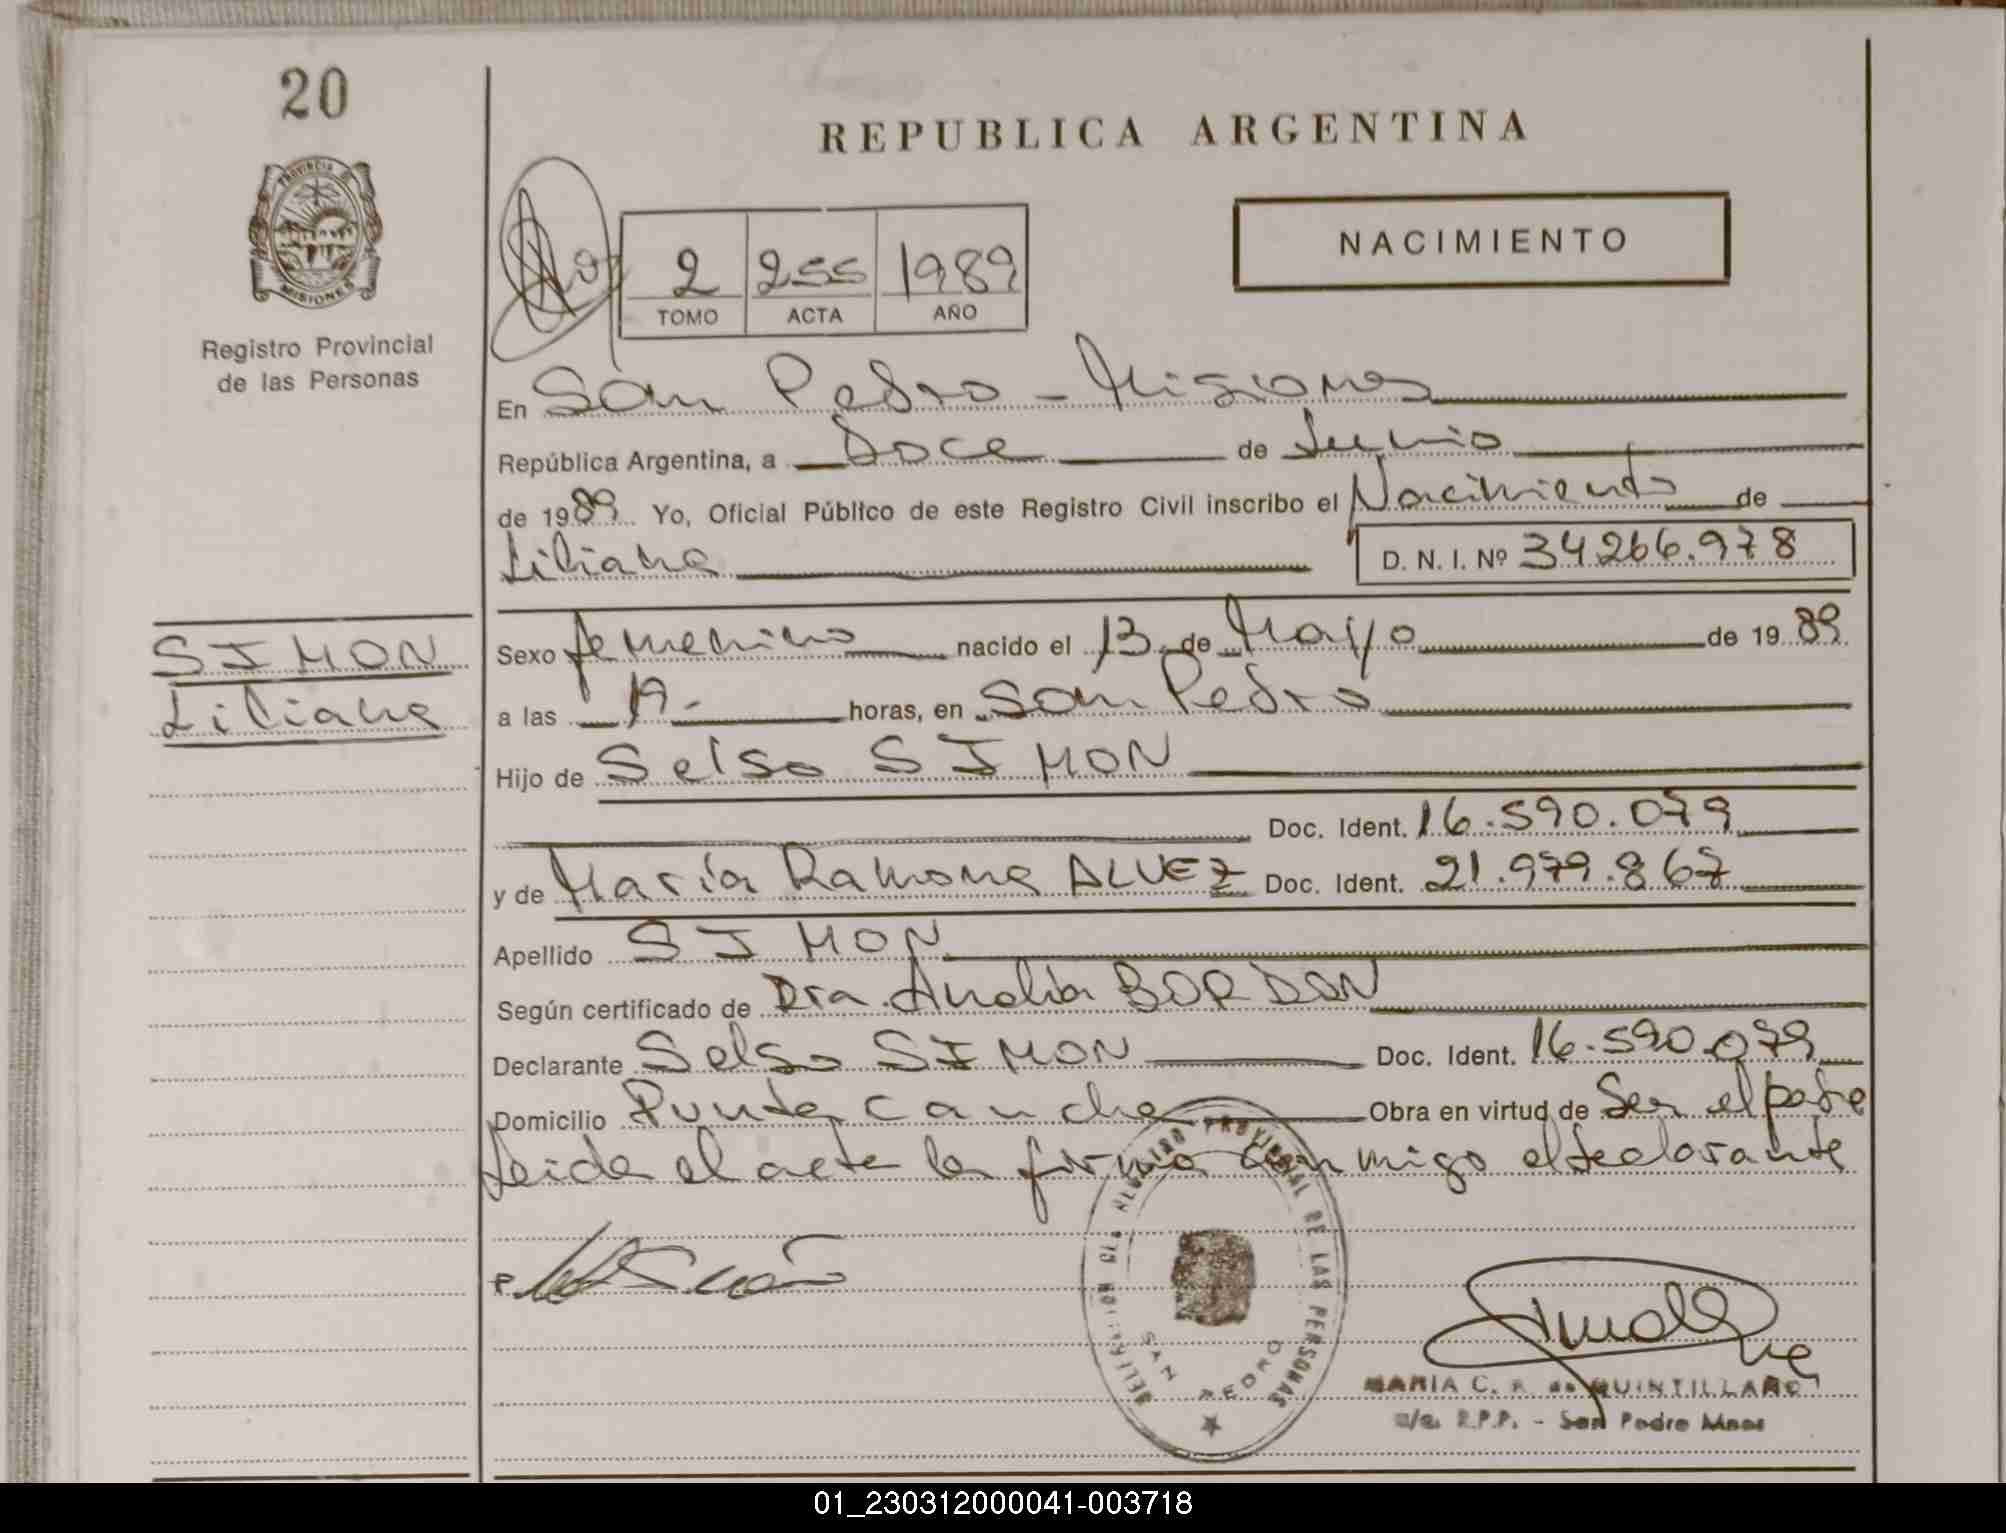 20
REPUBLICA ARGENTINA
PROVINCIA DE
MISIONES
Registro Provincial
de las Personas
NACIMIENTO
2 255 1989
TOMO ACTA AÑO
En San Pedro - Misiones
República Argentina, a Doce de Junio
de 1989 Yo, Oficial Público de este Registro Civil inscribo el Nacimiento de
Liliana D. N. I. Nº 34.266.978
SIMON
Liliana
Sexo femenino nacido el 13 de Mayo de 1989
a las 19.- horas, en San Pedro
Hijo de Selso SIMON
Doc. Ident. 16.590.079
y de María Ramona ALVEZ Doc. Ident. 21.979.867
Apellido SIMON
Según certificado de Dra. Analia BORDON
Declarante Selso SIMON Doc. Ident. 16.590.079
Domicilio Punta cancha Obra en virtud de Ser el padre
Leida el acta la firma conmigo el declarante
REGISTRO PROVINCIAL DE LAS PERSONAS
SAN PEDRO
MARIA C. R. de QUINTILLANO
a/c. R.P.P. - San Pedro Mnes
01_230312000041-003718